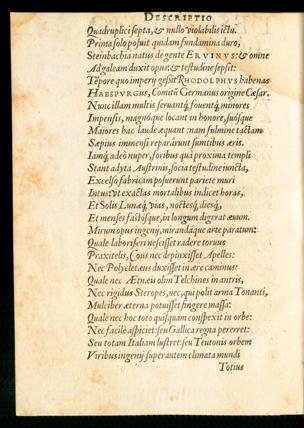 DESCRIPTIO
Quadruplici septa, & nullo violabilis ictu.
Prima solo posuit quidam fundamina duro,
Steinbachia natus de gente ERVINVS: & omne
Ad galeam duxit opus: & testudine sepsit:
Tēpore quo imperij gessit RHODOLPHVS habenas
HABSPVRGIVS, Comitū Germanus origine Cæsar.
Nunc illam multis seruantq́, fouentq́, minores
Impensis, magnóque locant in honore, suósque
Maiores hac laude æquant: nam fulmine tactam
Sæpius immensi reparârunt sumtibus æris.
Iamq́, adeò nuper, foribus quà proxima templi
Stant adyta Austrinis, socia testudine iuncta,
Excelso fabricam posuerunt pariete muri
Intus: vt exactas mortalibus indicet horas,
Et Solis Lunæq́, vias, noctesq́, diesq́,
Et menses fastósque, in longum digerat æuum.
Mirum opus ingenij, mirandáque arte paratum:
Quale laborifero nescisset radere toruus
Praxitelis, Cous nec depinxisset Apelles:
Nec Polycletæus duxisset in ære caminus:
Quale nec Ætnæis olim Telchines in antris,
Nec rigidus Steropes, nec, qui polit arma Tonanti,
Mulciber æterna potuisset fingere massa:
Quale nec hoc toto quisquam conspexit in orbe:
Nec facilè aspiciet: seu Gallica regna pererret:
Seu totam Italiam lustret: seu Teutonis orbem
Viribus ingenij superantem climata mundi
Totius